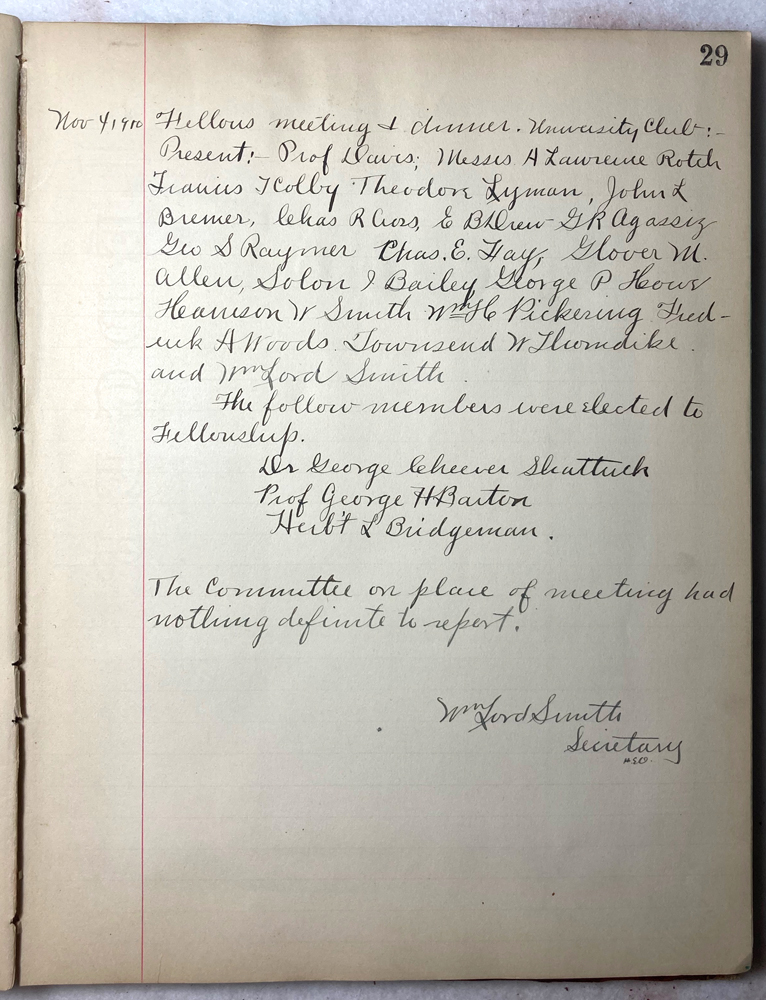 29
Nov 4, 1910 Fellows meeting & dinner. University Club:-
Present:- Prof Davis; Messrs A Lawrence Rotch
Francis T Colby Theodore Lyman, John L
Bremer, Chas R Cross, E B Drew G R Agassiz
Geo S Raymer Chas. E. Fay, Glover M.
Allen, Solon I Bailey George P Howe
Harrison W Smith Wm H Pickering Fred-
erick A Woods. Townsend W Thorndike.
and Wm Lord Smith.
The follow members were elected to
Fellowship.
Dr George Cheever Shattuck
Prof George H Barton
Herb't L Bridgeman.
The Committee on place of meeting had
nothing definite to report.
Wm Lord Smith
Secretary